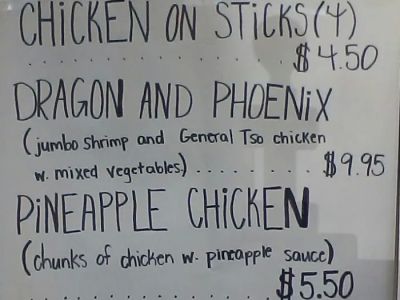 CHiCKEN ON STiCKS (4)
. . . . . . . . . . . . . . . . $4.50
DRAGON AND PHOENiX
(jumbo shrimp and General Tso chicken
w. mixed vegetables) . . . . . . . . $9.95
PiNEAPPLE CHiCKEN
(chunks of chicken w. pineapple sauce)
. . . . . . . . . . . . . . . $5.50